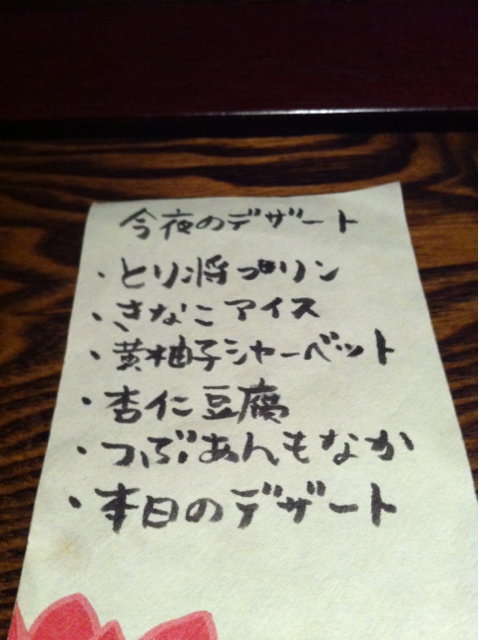 今夜のデザート
・とり将プリン
・きなこアイス
・黄柚子シャーベット
・杏仁豆腐
・つぶあんもなか
・本日のデザート